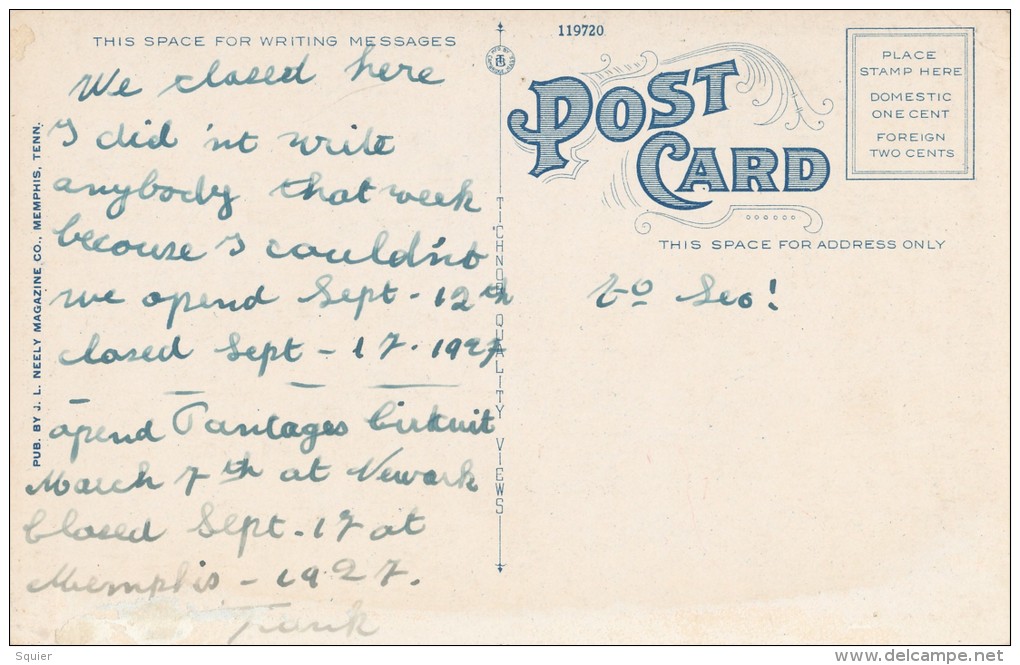 THIS SPACE FOR WRITING MESSAGES
We closed here
I did 'nt write
anybody that week
becouse I couldn't
we opend Sept - 12th
closed Sept - 17. 1927
opend Pantages Cirkuit
March 7th at Newark
Closed Sept. 17 at
Memphis - 1927.
Frank
PUB. BY J. L. NEELY MAGAZINE CO., MEMPHIS, TENN.
TICHNOR QUALITY VIEWS
119720
POST CARD
PLACE
STAMP HERE
DOMESTIC
ONE CENT
FOREIGN
TWO CENTS
THIS SPACE FOR ADDRESS ONLY
to Leo!
Squier
delcampe.net